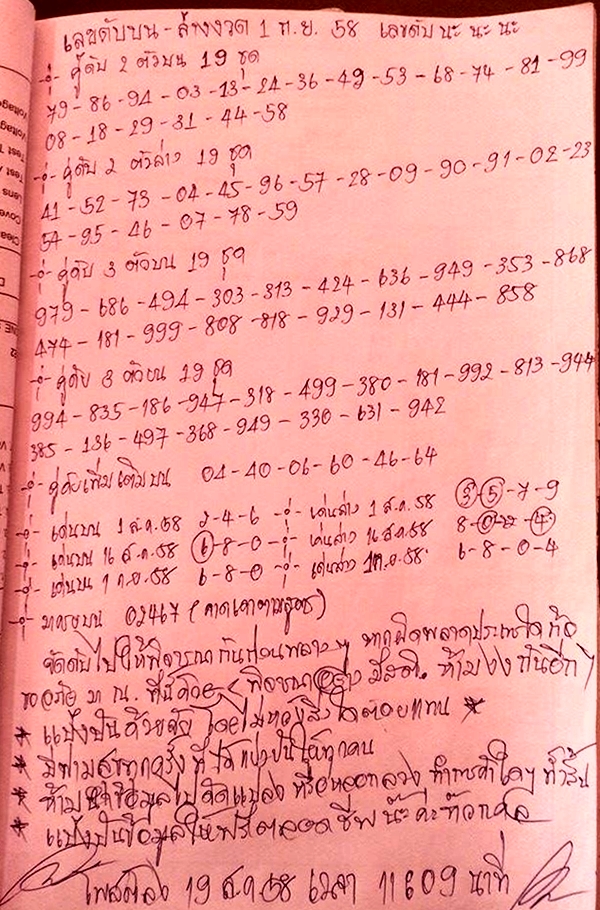 เลขดับบน - ล่าง งวด 1 ก.ย. 58 เลขดับ นะ นะ นะ
คู่ดับ 2 ตัวบน 19 ชุด
79 - 86 - 94 - 03 - 13 - 24 - 36 - 49 - 53 - 68 - 74 - 81 - 99
08 - 18 - 29 - 31 - 44 - 58
คู่ดับ 2 ตัวล่าง 19 ชุด
41 - 52 - 73 - 04 - 45 - 96 - 57 - 28 - 09 - 90 - 91 - 02 - 23
54 - 95 - 46 - 07 - 78 - 59
คู่ดับ 3 ตัวบน 19 ชุด
979 - 686 - 494 - 303 - 313 - 424 - 636 - 949 - 353 - 868
474 - 181 - 999 - 808 - 818 - 929 - 131 - 444 - 858
คู่ดับ 3 ตัวบน 19 ชุด
994 - 835 - 186 - 947 - 318 - 499 - 380 - 181 - 992 - 813 - 944
385 - 136 - 497 - 368 - 949 - 330 - 631 - 942
คู่ดับเพิ่มเติมบน 04 - 40 - 06 - 60 - 46 - 64
เด่นบน 1 ส.ค. 58 2 - 4 - 6 เด่นล่าง 1 ส.ค. 58 3 - 5 - 7 - 9
เด่นบน 16 ส.ค. 58 6 - 8 - 0 เด่นล่าง 16 ส.ค. 58 8 - 0 - 2 - 4
เด่นบน 1 ก.ย. 58 6 - 8 - 0 เด่นล่าง 1 ก.ย. 58 6 - 8 - 0 - 4
02467 (คาดเดาตามสูตร)
จัดดับไปให้พิจารณากันก่อนพลาง ๆ หากผิดพลาดประการใด ก็
ขออภัย มา ณ. ที่นี้ด้วย พิจารณาอย่างมีสติ. ห้ามงง กันอีก ๆ
* แบ่งปันด้วยใจ โดยไม่หวังสิ่งใดตอบแทน *
* มีความสุขทุกครั้งที่ได้แบ่งปันให้ทุกคน
* ห้ามนำข้อมูลไปดัดแปลง หรือหลอกลวง ทำการค้าใดๆ ทั้งสิ้น
* แบ่งปันข้อมูลให้ฟรีตลอดชีพ น๊ะค่ะทุกคน
โพสต์ลง 19 ส.ค. 58 เวลา 11.09 นาที